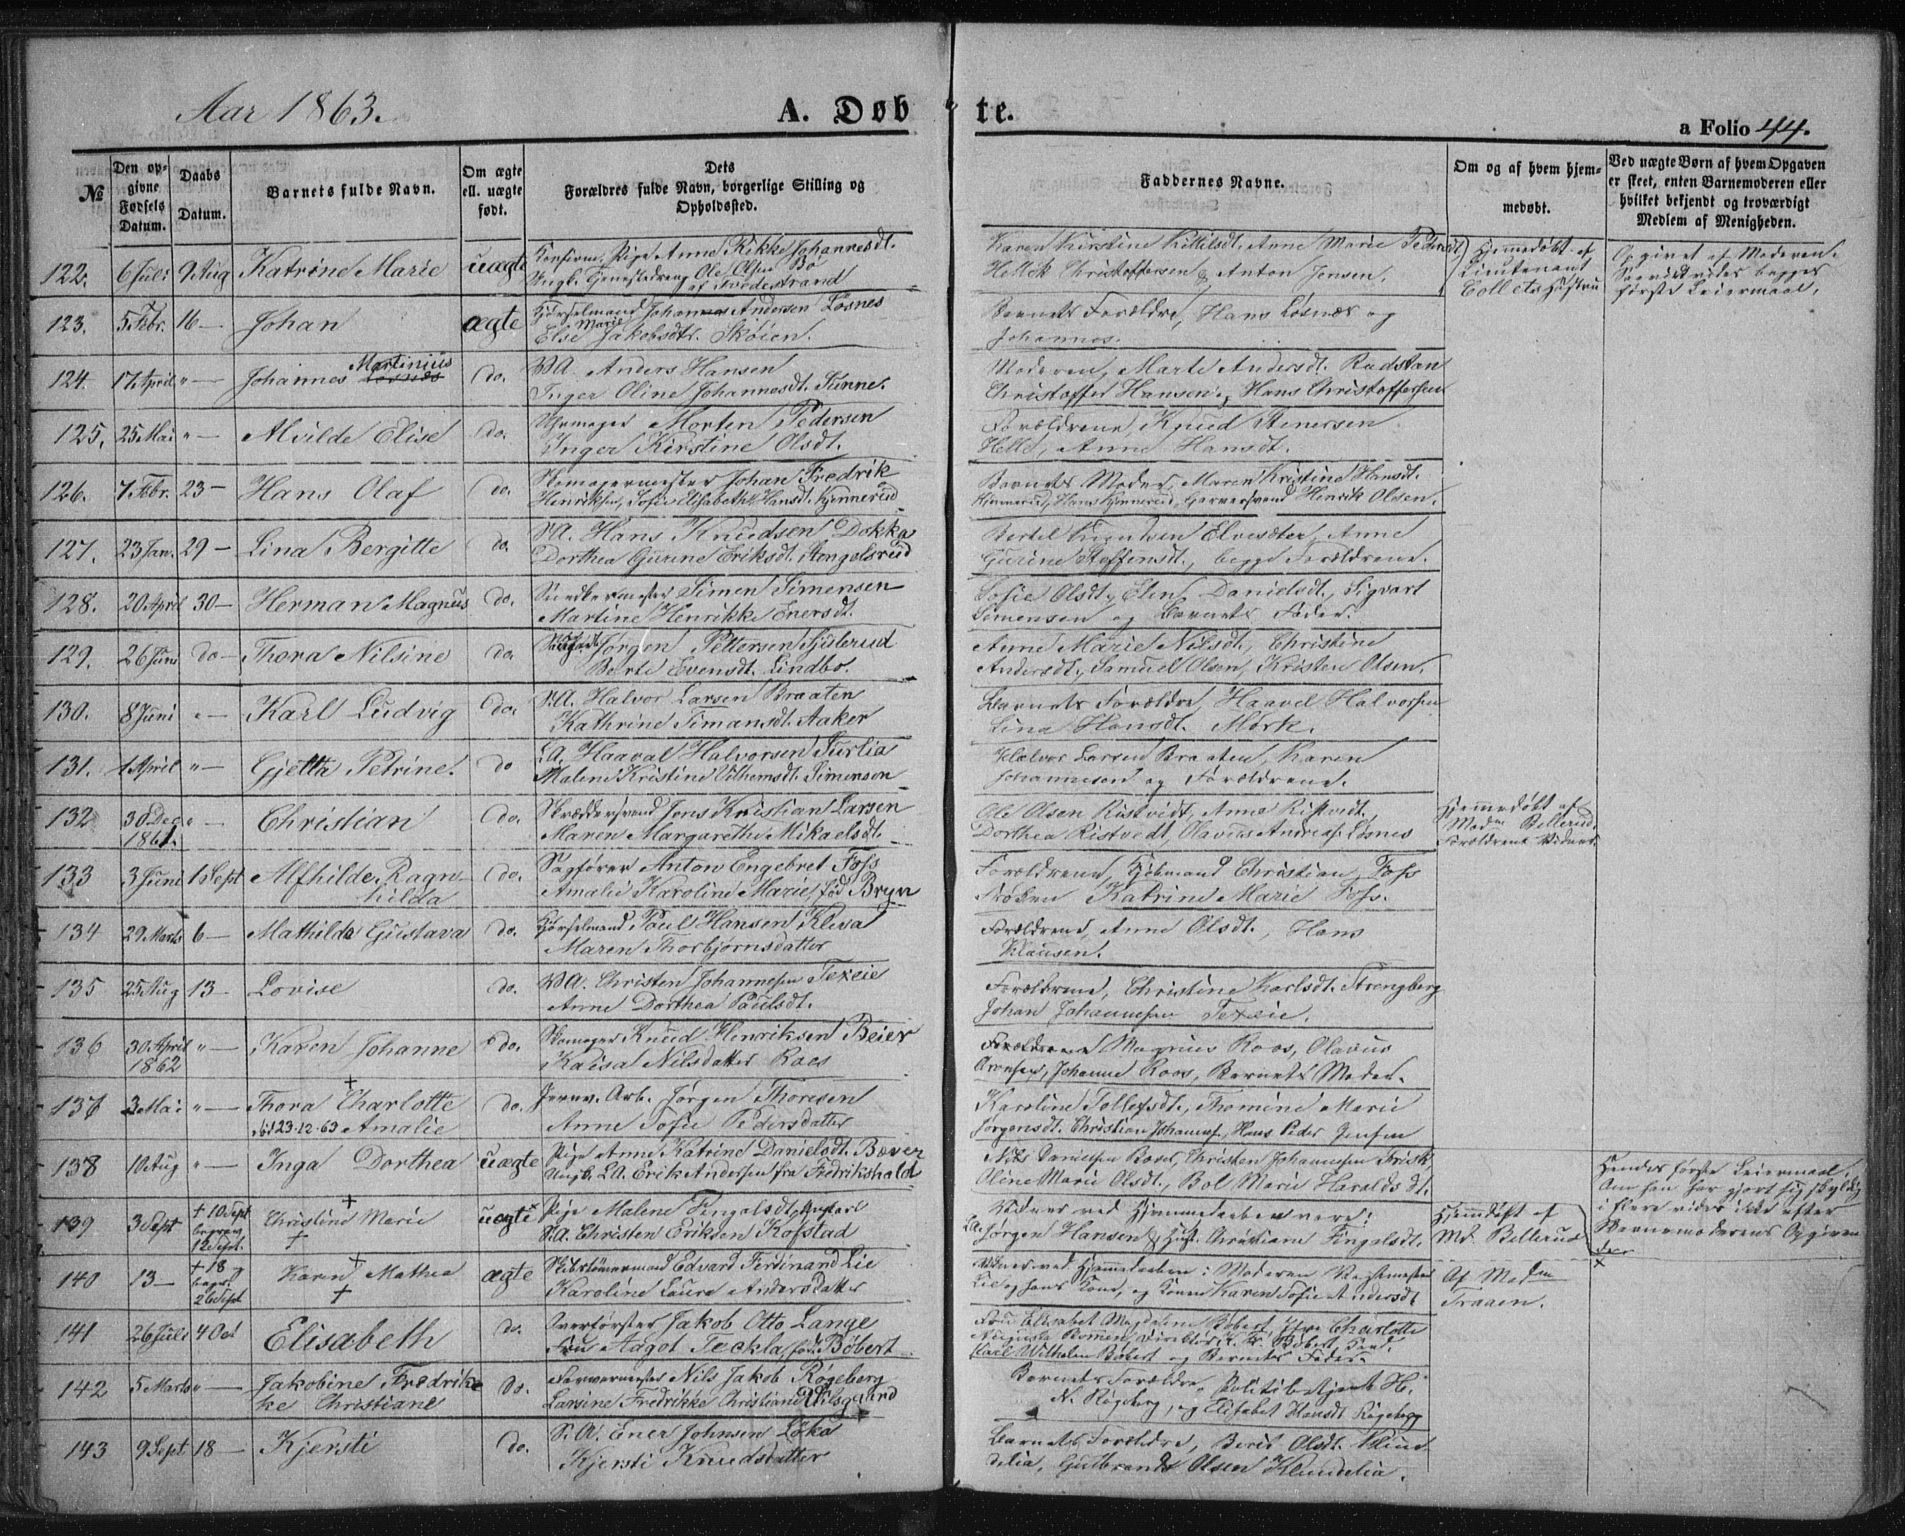 Aar 1863.
A. Døbte.
a Folio 44.
№
Den opgivne Fødsels Datum.
Daabs Datum.
Barnets fulde Navn.
Om ægte ell. uægte født.
Dets Forældres fulde Navn, borgerlige Stilling og Opholdssted.
Faddernes Navne.
Om og af hvem hjemmedøbt.
Ved uægte Børn af hvem Opgaven er skeet, enten Barnemoderen eller hvilket bekjendt og troværdigt Medlem af Menigheden.
122. 6 Juli 9 Aug Katrine Marie uægte Pige Anne Rikke Johannesdt.
Ungk. Ole Olsen Bø af Tvedestrand
Karen Kirstine Anne Marie Pedersdt
Christoffersen & Anton Jensen.
Hjemmedøbt af Lieutenant Colletts Hustru
Opgivet af Moderen. begges første Leiermaal.
123. 5 Febr. 16 — Johan ægte Johannes Andersen Løsnes
Else Marie Jakobsdtr. Skøien.
Barnets Forældre, Hans Løsnæs og
Johannes.
124. 17 April " — Johannes Martinius do. Anders Hansen
Inger Oline Johannesdt. Tunne.
Moderen, Marte Andersdt. Rudstan
Christoffer Hansen, Hans Christoffersen
125. 25 Mai " — Alvilde Elise do. Morten Pedersen
Inger Kirstine Olsdt.
Forældrene, Knud Stenersen
Helle, Anne Hansdt.
126. 7 Febr. 23 — Hans Olaf do. Skomagermester Johan Fredrik
Henriksen, Sofie Elisabeth Hansdt. Kjennerud
Barnets Moder, Maren Kristine Hansdt.
Kjennerud, Hans Kjennerud, Garversvend Henrik Olsen.
127. 23 Jan. 29 — Lina Bergitte do. Hans Knudsen Dokka
Dorthea Gurine Eriksdt. Stengelsrud
Bertel Knutsen Elvesæter, Anne
Gurine Steffensdt., begge Forældrene.
128. 20 April 30 — Herman Magnus do. Snedkermester Simen Simensen
Martine Henrikke Enersdt.
Sofie Olsdt., Elen Danielsdt., Sigvart
Simensen og Barnets Fader.
129. 26 Juni do — Thora Nilsine do. Jørgen Pettersen Gislerud
Berte Evensdt. Lindbo.
Anne Marie Nilsdt., Christine
Andersdt., Samuel Olsen, Kristen Olsen.
130. 8 Juni " — Karl Ludvig do. Halvor Larsen Braaten
Kathrine Simansdt. Aaker
Barnets Forældre, Haavel Halvorsen
Lina Hansdt. Mørk.
131. 1 April " — Gjetta Petrine. do Haaval Halvorsen Turlia
Malene Kristine Simensen
Halvor Larsen Braaten, Karen
Johannesen og Forældrene.
132 30 Dec 1861. " Christian do. Skræddersvend Jens Kristian Larsen
Maren Margarethe Mikaelsdt.
Ole Olsen Ristvedt, Anne Ristvedt,
Dorthea Ristvedt, Olavus Andreas. Løsnes
Hjemmedøbt af Madm Bellerud. Forældrene Vidner.
133 3 Juni 1 Sept Alfhilde Ragnhilda do. Sagfører Anton Engebret Foss
Amalie Karoline Marie, fød Bryn
Forældrene, Kjøbmand Christian Foss
Frøken Katrine Marie Foss.
134 29 Marts 6 — Mathilde Gustava do. Kjørselmand Poul Hansen Kleva
Maren Thorbjørnsdatter
Forældrene, Anne Olsdt., Hans
Klausen.
135 25 Aug 13 — Lovise do. Christen Johannesen Texeie
Anne Dorthea Paulsdt.
Forældrene, Christine Karlsdt. Strengberg
Johan Johannesen Texeie.
136 30 April 1862 " — Karen Johanne do. Skomager Knud Henriksen Beier
Kaisa Nilsdatter Roos
Forældrene Magnus Roos, Olavus
Arvesen, Johanne Roos, Barnets Moder.
137 3 Mai " — Thora Charlotte Amalie † do. Jernv. Arb. Jørgen Thoresen
Anne Sofie Pedersdatter
Død 23-12-63
Karoline Tollefsdt., Thomine Marie
Jørgensdt. Christian Johannes., Hans Peder Jensen
138 10 Aug " — Inga Dorthea uægte Pige Anne Katrine Danielsdt. Bæver
Ungk. Erik Andersen fra Fredrikshald
Nils Danielsen Christen Johannesen Frisk
Oline Marie Olsdt., Bol Marie Haralds dt.
Hendes første Leiermaal
Om han har gjort sig skyldig i flere vides ikke efter
Barnemoderens Opgivende
139 3 Sept † 10 Sept begravet 12 Sept. Christine Marie † uægte Pige Malene Fingalsdt.,
Christen Eriksen Kofstad
Vidner ved Hjemmedaaben vare:
Jørgen Hansen & Hust. Christiane Fingalsdt.
Hjemmdøbt af Md. Bellerud
140 13 — † 18 begr. 26 Sept Karen Mathea † ægte Edvard Ferdinand Lie
Karoline Laura Andersdatter
Vidner ved Hjemmedaaben: Moderen
Lie og hans Kone, og Konen Karen Sofie Andersdt
Af Madm Traaen.
141 26 Juli 4 Oct Elisabeth do. Overførster Jakob Otto Lange
Fru Aagot Teckla fød Bøbert
Fru Elisabet Magdalene Bøbert Charlotte
Auguste Direktør K. Fr. Bøbert Kand.
Karl Wilhelm Bøbert og Barnets Fader.
142 5 Marts " — Jakobine Fredrikke Christiane do. Farvermester Nils Jakob Røgeberg
Larsine Fredrikke Christiane Ulsgaard
Barnets Forældre, Politibetjent H.
N. Røgeberg, og Elisabet Hansdt Røgeberg
143 9 Sept 18 — Kjersti do. Ener Johnsen Løka
Kjersti Knudsdatter
Barnets Forældre, Berit Olsdt. Klundelia,
Gulbrand Olsen Klundelia.